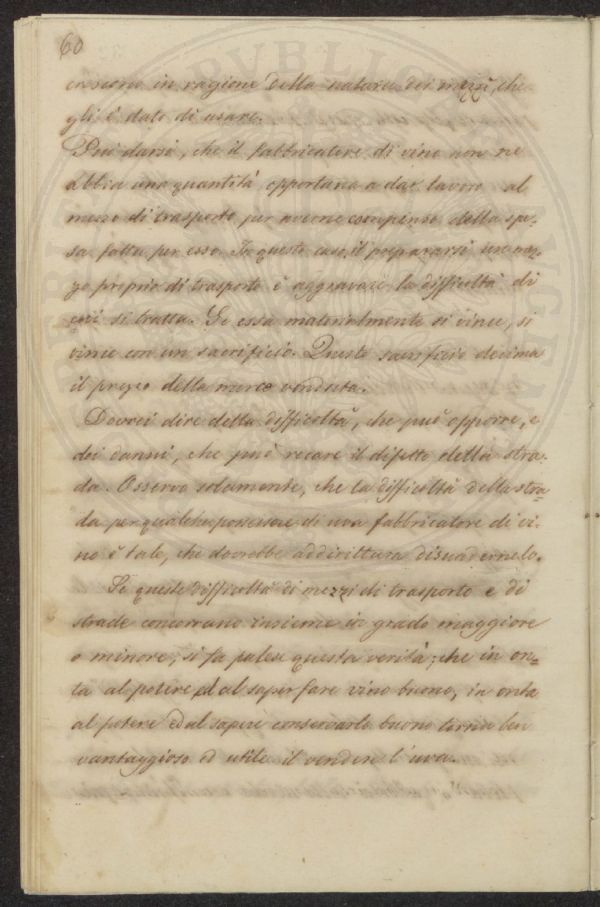 60
crescono in ragione della natura dei mezzi, che
gli è dato di usare.
Può darsi, che il fabbricatore di vino non ne
abbia una quantità opportuna a dar lavoro al
mezzo di trasporto, per averne compenso della spe-
sa fatta per esso. In questo caso, il prepararsi un mez-
zo proprio di trasporto è aggravare la difficoltà di
cui si tratta. Se essa materialmente si vince, si
vince con un sacrificio. Questo sacrificio decima
il prezzo della merce venduta.
Dovrei dire della difficoltà, che può opporre, e
dei danni, che può recare il difetto della stra-
da. Osservo solamente, che la difficoltà della stra-
da per qualche possessore di uva fabbricatore di vi-
no è tale, che dovrebbe addirittura disuadernelo.
Se queste difficoltà di mezzi di trasporto e di
strade concorrano insieme in grado maggiore
o minore, si fa palese questa verità; che in on-
ta al potere ed al saper fare vino buono, in onta
al potere ed al sapere conservarlo buono torna ben
vantaggioso ed utile il vendere l'uva.